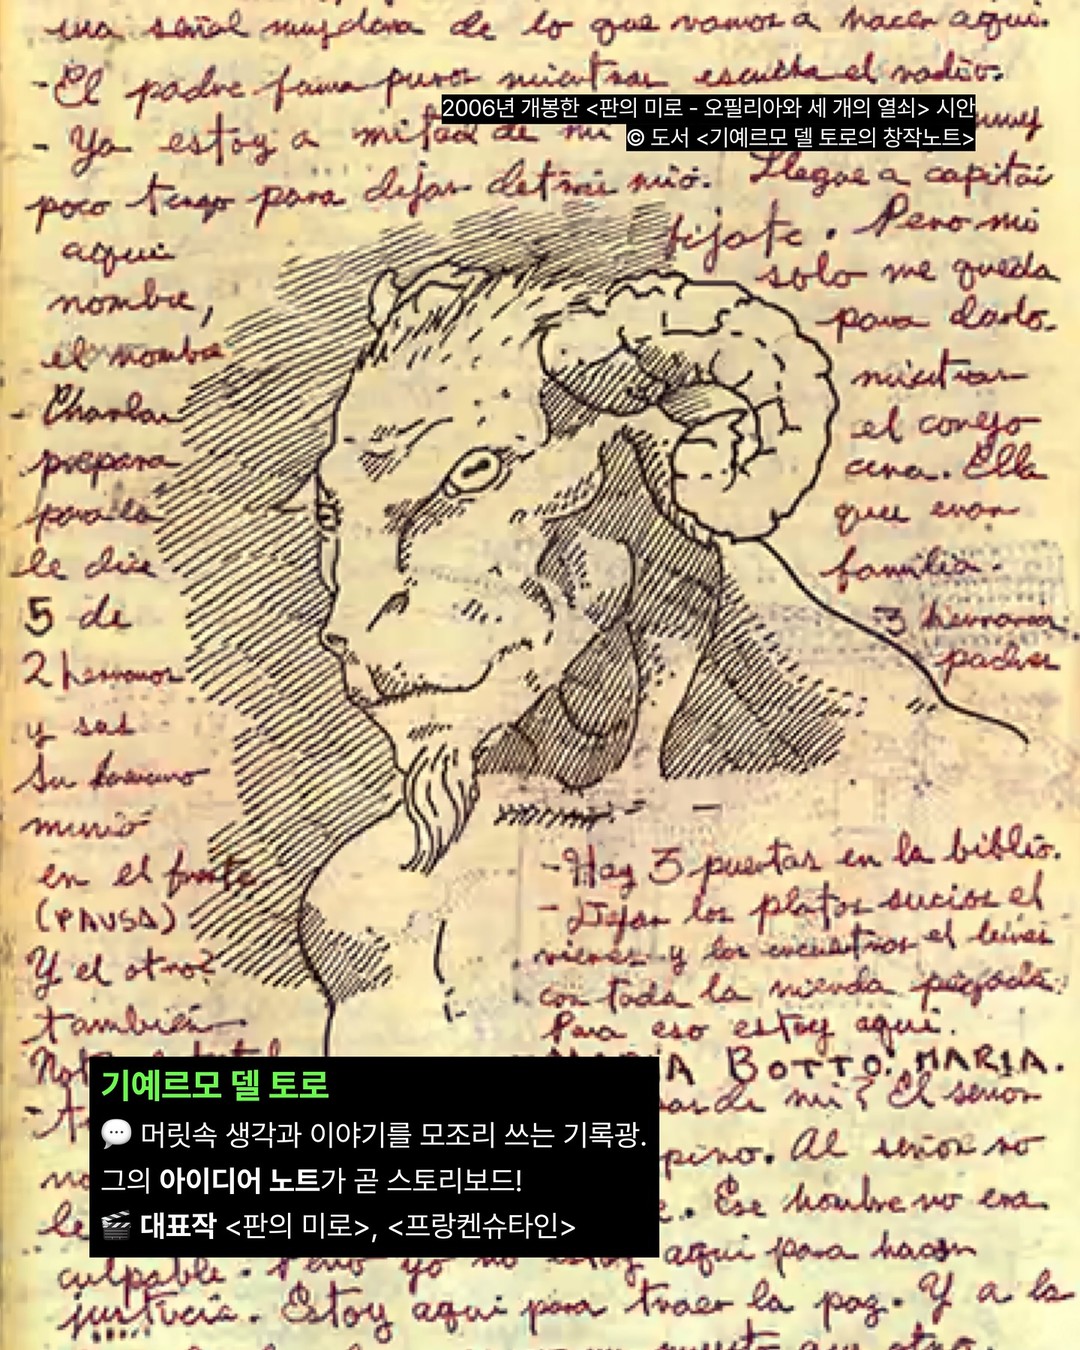 una señal muy clara de lo que vamos a hacer aqui.
- El padre fuma puros mientras escucha el radio.
2006년 개봉한 <판의 미로 - 오필리아와 세 개의 열쇠> 시안
- Ya estoy a mitad de mi
© 도서 <기예르모 델 토로의 창작노트>
poco tengo para dejar detrás mio. Llegue a capitán
fijate. Pero mi
aqui
solo me queda
nombre,
para darlo.
el nombre
mientras
- Charlan
el conejo
prepara
cena. Ella
para la
que eran
le dice
familia.
5 de
3 hermanos
2 hermanos
padres
y sus
su hermano
murió
- Hay 3 puertas en la biblio.
en el frente
- Dejan los platos sucios el
(PAUSA)
viernes y los encuentras el lunes
Y el otro?
con toda la mierda pegada.
también
Para eso estoy aqui.
BOTTO: MARIA.
기예르모 델 토로
de mi? El señor
💬 머릿속 생각과 이야기를 모조리 쓰는 기록광.
pino. Al señor no
그의 아이디어 노트가 곧 스토리보드!
le
Ese hombre no era
🎬 대표작 <판의 미로>, <프랑켄슈타인>
culpable. Pero yo no estoy aqui para hacer
justicia. Estoy aqui para traer la paz. Y a la